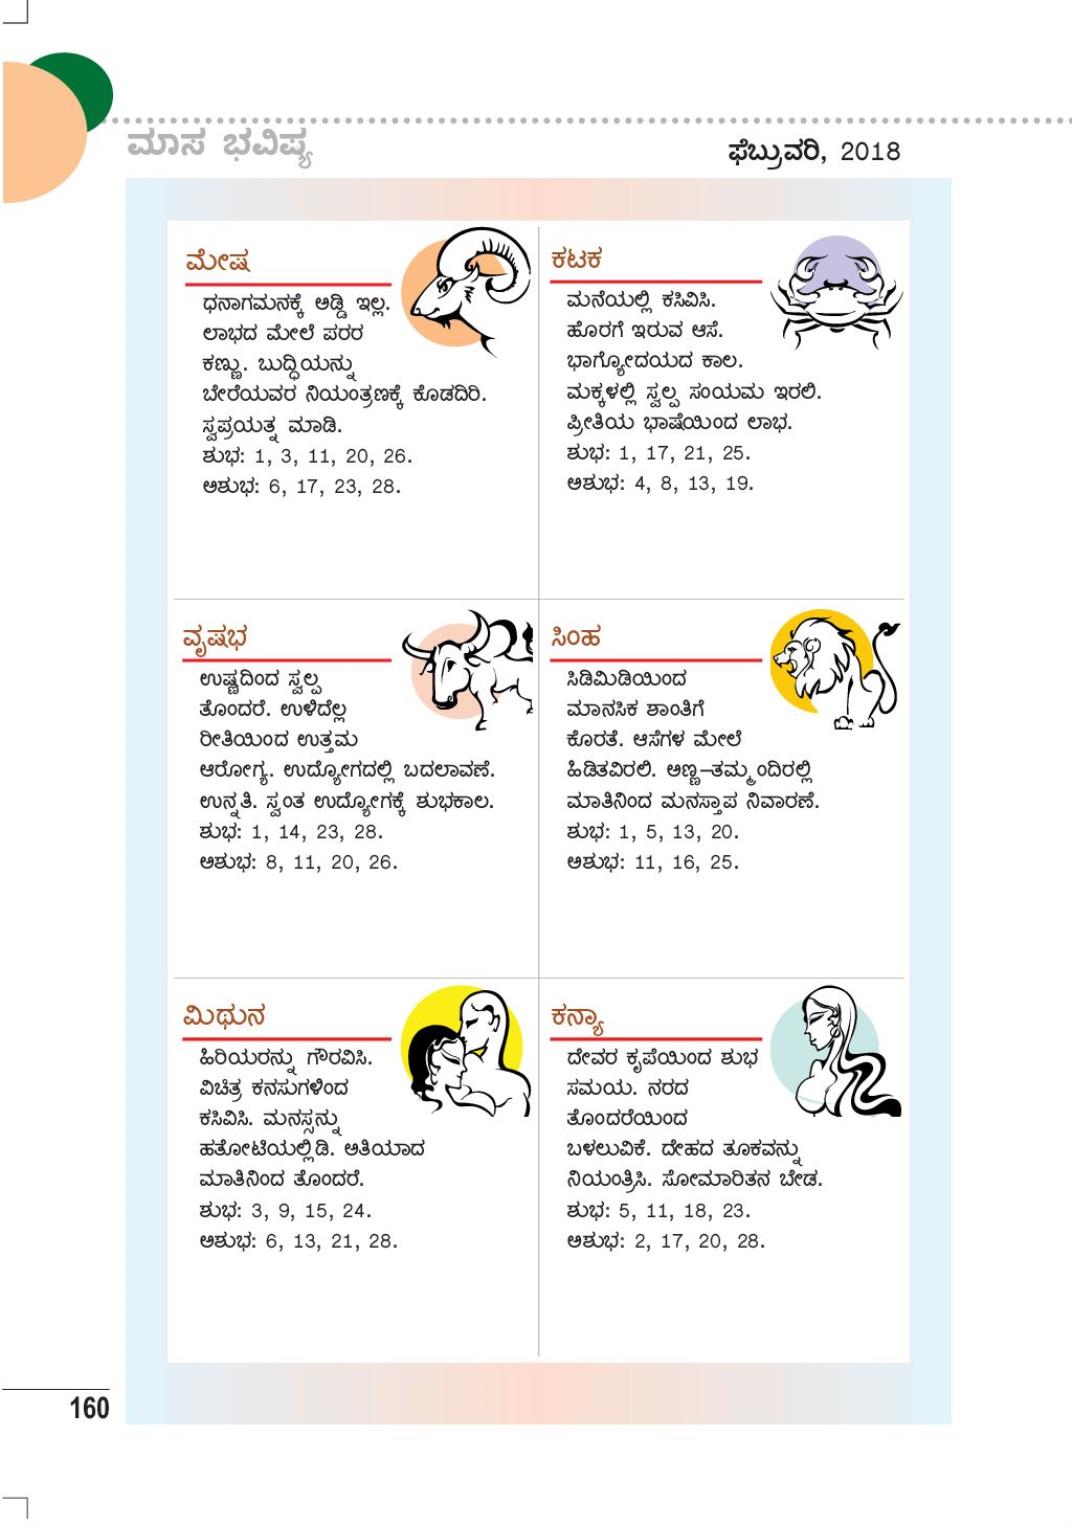 ಮಾಸ ಭವಿಷ್ಯ
ಫೆಬ್ರುವರಿ, 2018
ಮೇಷ
ಧನಾಗಮನಕ್ಕೆ ಅಡ್ಡಿ ಇಲ್ಲ.
ಲಾಭದ ಮೇಲೆ ಪರರ
ಕಣ್ಣು. ಬುದ್ಧಿಯನ್ನು
ಬೇರೆಯವರ ನಿಯಂತ್ರಣಕ್ಕೆ ಕೊಡದಿರಿ.
ಸ್ವಪ್ರಯತ್ನ ಮಾಡಿ.
ಶುಭ: 1, 3, 11, 20, 26.
ಅಶುಭ: 6, 17, 23, 28.
ವೃಷಭ
ಉಷ್ಣದಿಂದ ಸ್ವಲ್ಪ
ತೊಂದರೆ. ಉಳಿದೆಲ್ಲ
ರೀತಿಯಿಂದ ಉತ್ತಮ
ಆರೋಗ್ಯ. ಉದ್ಯೋಗದಲ್ಲಿ ಬದಲಾವಣೆ.
ಉನ್ನತಿ. ಸ್ವಂತ ಉದ್ಯೋಗಕ್ಕೆ ಶುಭಕಾಲ.
ಶುಭ: 1, 14, 23, 28.
ಅಶುಭ: 8, 11, 20, 26.
ಮಿಥುನ
ಹಿರಿಯರನ್ನು ಗೌರವಿಸಿ.
ವಿಚಿತ್ರ ಕನಸುಗಳಿಂದ
ಕಸಿವಿಸಿ. ಮನಸ್ಸನ್ನು
ಹತೋಟಿಯಲ್ಲಿಡಿ. ಅತಿಯಾದ
ಮಾತಿನಿಂದ ತೊಂದರೆ.
ಶುಭ: 3, 9, 15, 24.
ಅಶುಭ: 6, 13, 21, 28.
ಕಟಕ
ಮನೆಯಲ್ಲಿ ಕಸಿವಿಸಿ.
ಹೊರಗೆ ಇರುವ ಆಸೆ.
ಭಾಗ್ಯೋದಯದ ಕಾಲ.
ಮಕ್ಕಳಲ್ಲಿ ಸ್ವಲ್ಪ ಸಂಯಮ ಇರಲಿ.
ಪ್ರೀತಿಯ ಭಾಷೆಯಿಂದ ಲಾಭ.
ಶುಭ: 1, 17, 21, 25.
ಅಶುಭ: 4, 8, 13, 19.
ಸಿಂಹ
ಸಿಡಿಮಿಡಿಯಿಂದ
ಮಾನಸಿಕ ಶಾಂತಿಗೆ
ಕೊರತೆ. ಆಸೆಗಳ ಮೇಲೆ
ಹಿಡಿತವಿರಲಿ. ಅಣ್ಣ-ತಮ್ಮಂದಿರಲ್ಲಿ
ಮಾತಿನಿಂದ ಮನಸ್ತಾಪ ನಿವಾರಣೆ.
ಶುಭ: 1, 5, 13, 20.
ಅಶುಭ: 11, 16, 25.
ಕನ್ಯಾ
ದೇವರ ಕೃಪೆಯಿಂದ ಶುಭ
ಸಮಯ. ನರದ
ತೊಂದರೆಯಿಂದ
ಬಳಲುವಿಕೆ. ದೇಹದ ತೂಕವನ್ನು
ನಿಯಂತ್ರಿಸಿ. ಸೋಮಾರಿತನ ಬೇಡ.
ಶುಭ: 5, 11, 18, 23.
ಅಶುಭ: 2, 17, 20, 28.
160